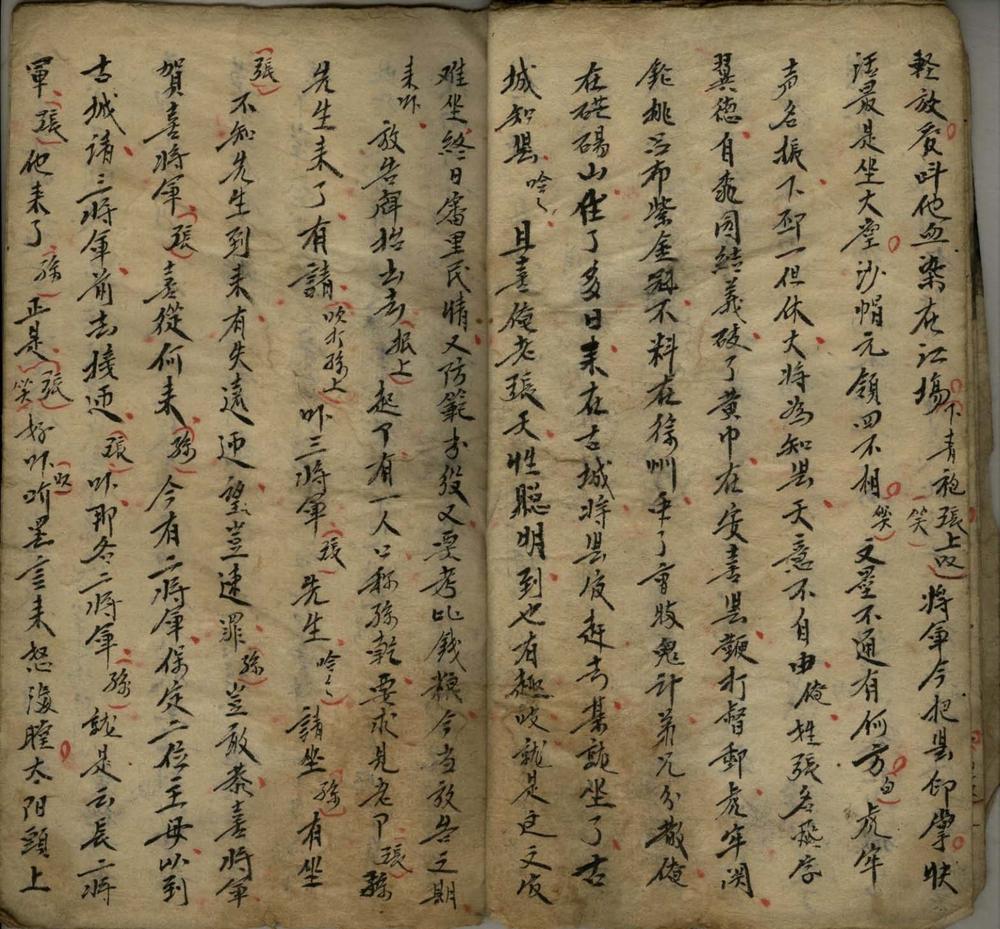 輕放廢呌他血染在江塲下青袍張上㕥笑將軍今把县印掌快
活最是坐大堂沙帽元領四不相笑文墨不通有何方白虎牢
声名振下邳一但休大將為知县天意不自由俺姓張名飛字
翼德自桃园結義破了黄巾在安喜县鞭打督郵虎牢関
鎗挑吕布紫金冠不料在徐州中了曹賊鬼計弟兄分散俺
在硭碭山住了多日来在古城將县官赶去某就坐了古
城知县哈〻且喜俺老張天性聪明到也有趣吱就是这文官
难坐終日審里民情又防範書役又要考比錢粮今当放告之期
来吥放告牌抬出去报上起了有一人口称孫乾要求見老卩張孫
先生来了有請吹打孫上吥三將軍張先生哈〻請坐孫有坐
張不知先生到来有失遠迎望豈速罪孫豈敢恭喜將軍
賀喜將軍張喜從何来孫今有二將軍保定二位主母以到
古城請三將軍前去接迎張吥那个二將軍孫就是云長二將
軍張他来了孫正是張笑好吥㕥听罢言来怒滿膛太阳頭上